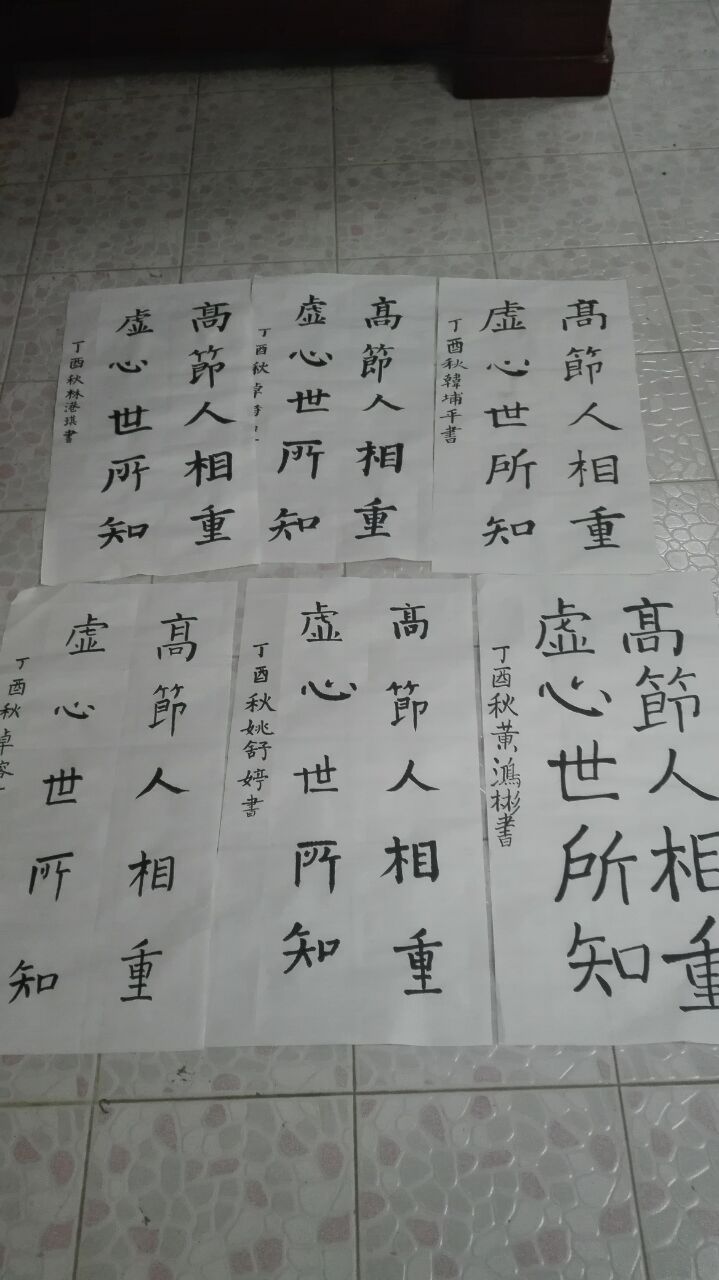 髙節人相重
虚心世所知
丁酉秋林港琪書
髙節人相重
虚心世所知
丁酉秋
髙節人相重
虚心世所知
丁酉秋韓埔平書
髙節人相重
虚心世所知
丁酉秋卓
髙節人相重
虚心世所知
丁酉秋姚舒婷書
髙節人相重
虚心世所知
丁酉秋黄鴻彬書